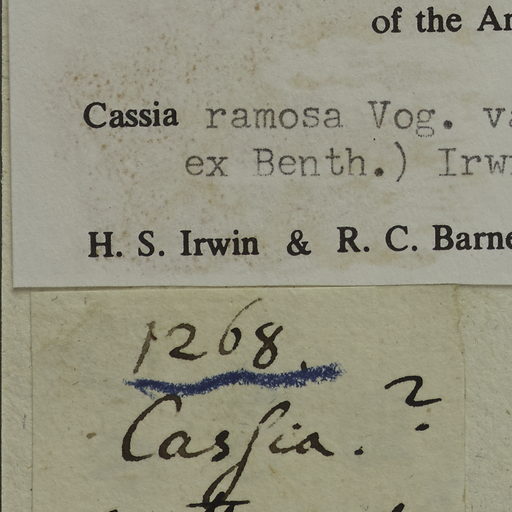 of the
Cassia ramosa Vog.
ex Benth.) Irw
H. S. Irwin & R. C. Barne
1268.
Cassia. ?